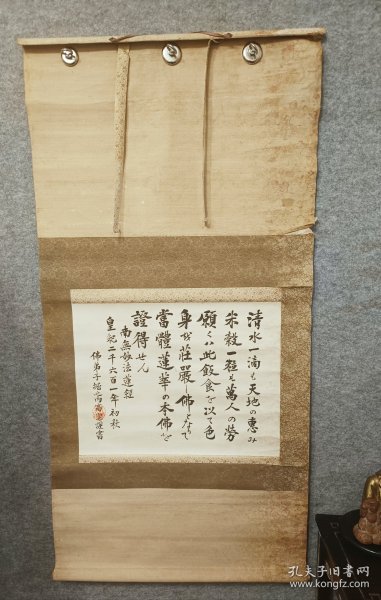 清水一滴も天地の恵み
米穀一粒も萬人の労
願くハ此飲食を以て色
身を荘嚴し佛となりて
當體蓮華の本佛を
證得せん
南無妙法蓮經
皇紀二千六百一年初秋
佛弟子
謹書
孔夫子旧书网
www.kongfz.com